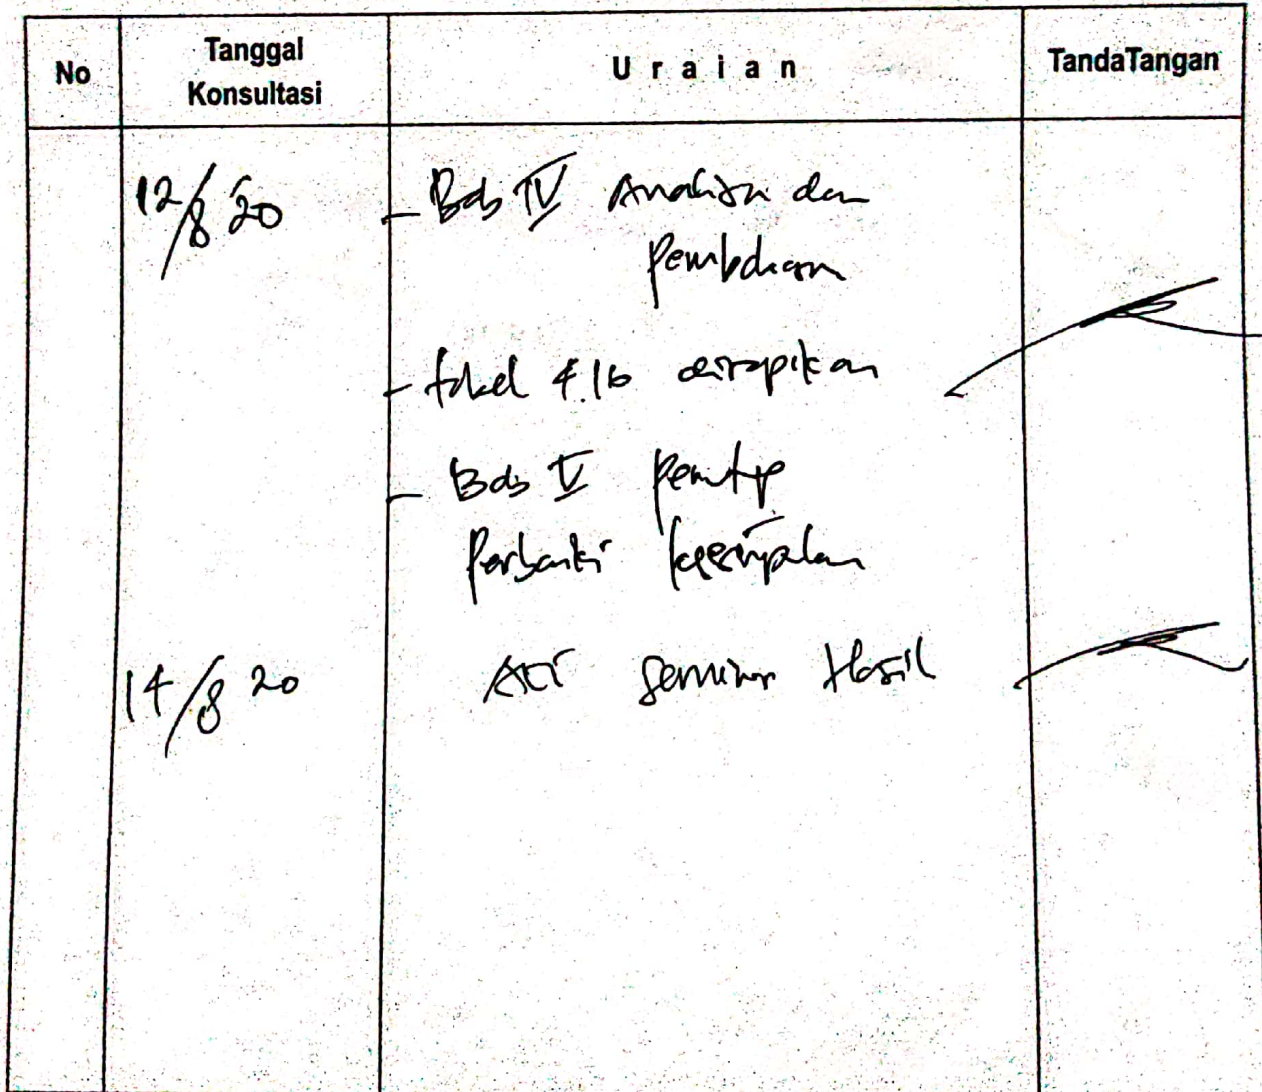 No
Tanggal
Konsultasi
Uraian
TandaTangan
12/8 20
- Bab IV Analisa dan
Pembahasan
- tabel 4.16 dirapikan
- Bab V Penutup
Perbaiki kesimpulan
14/8 20
ACC Seminar Hasil